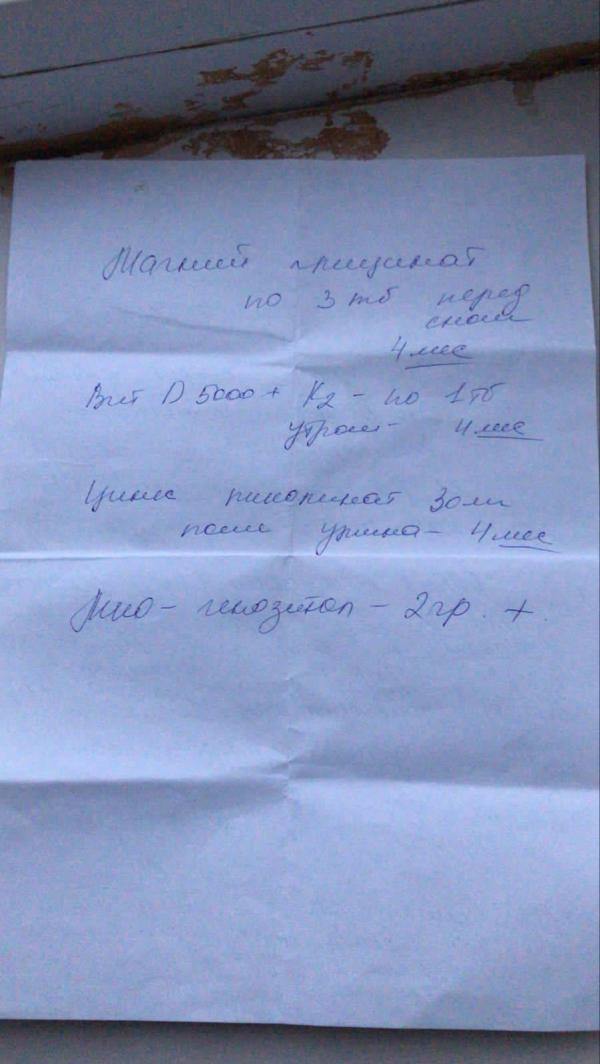 Магний глицинат
по 3 тб перед
сном
4 мес
Вит D 5000 + K2 - по 1 тб
утром - 4 мес
Цинк пиколинат 30 мг
после ужина - 4 мес
Мио - инозитол - 2 гр. +